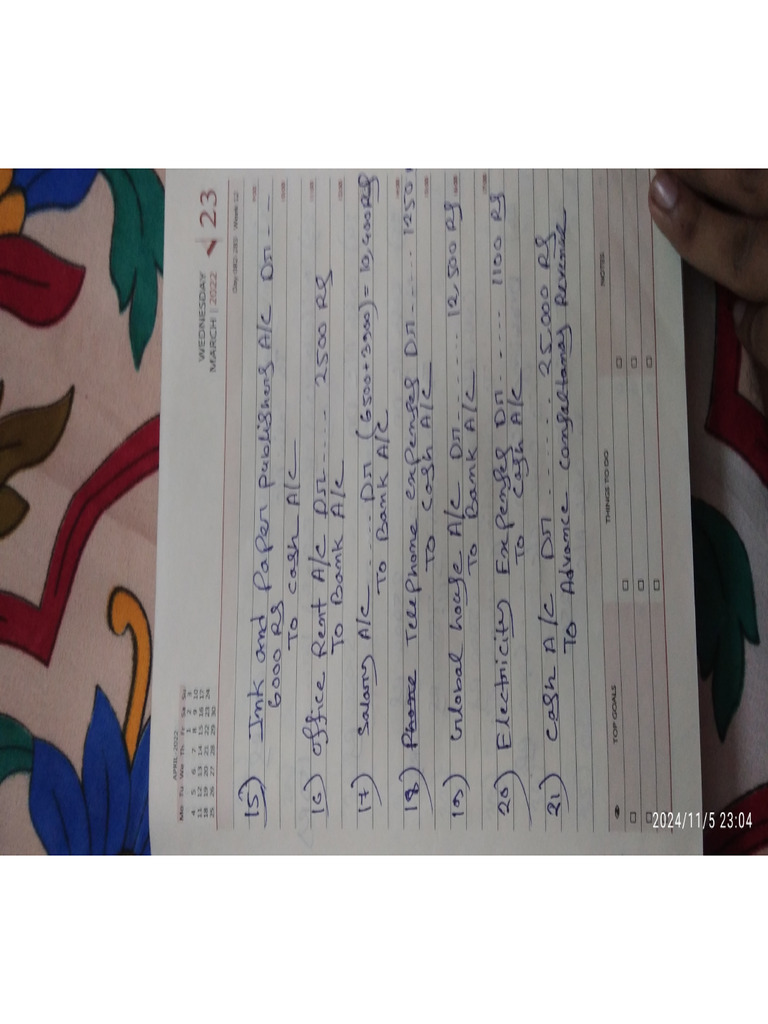 WEDNESDAY
MARCH | 2022 23
APRIL - 2022
Mo Tu We Th Fr Sa Su
1 2 3
4 5 6 7 8 9 10
11 12 13 14 15 16 17
18 19 20 21 22 23 24
25 26 27 28 29 30
15) Ink and Paper publishers A/C Dr - -
6000 Rs
To cash A/C
16) office Rent A/C Dr - - - - 2500 Rs
To Bank A/C
17) Salary A/C . . . . . Dr (6500+3900) = 10,400 Rs
To Bank A/C
18) Phone Telephone expenses Dr - . . . . 1250
To cash A/C
19) Global house A/C Dr . . - . . . . 12500 Rs
To Bank A/C
20) Electricity Expenses Dr . . . . . 1100 Rs
To cash A/C
21) cash A/C Dr . . . . . . . 25.000 Rs
To Advance consultancy Revenue
TOP GOALS
THINGS TO DO
NOTES
2024/11/5 23:04